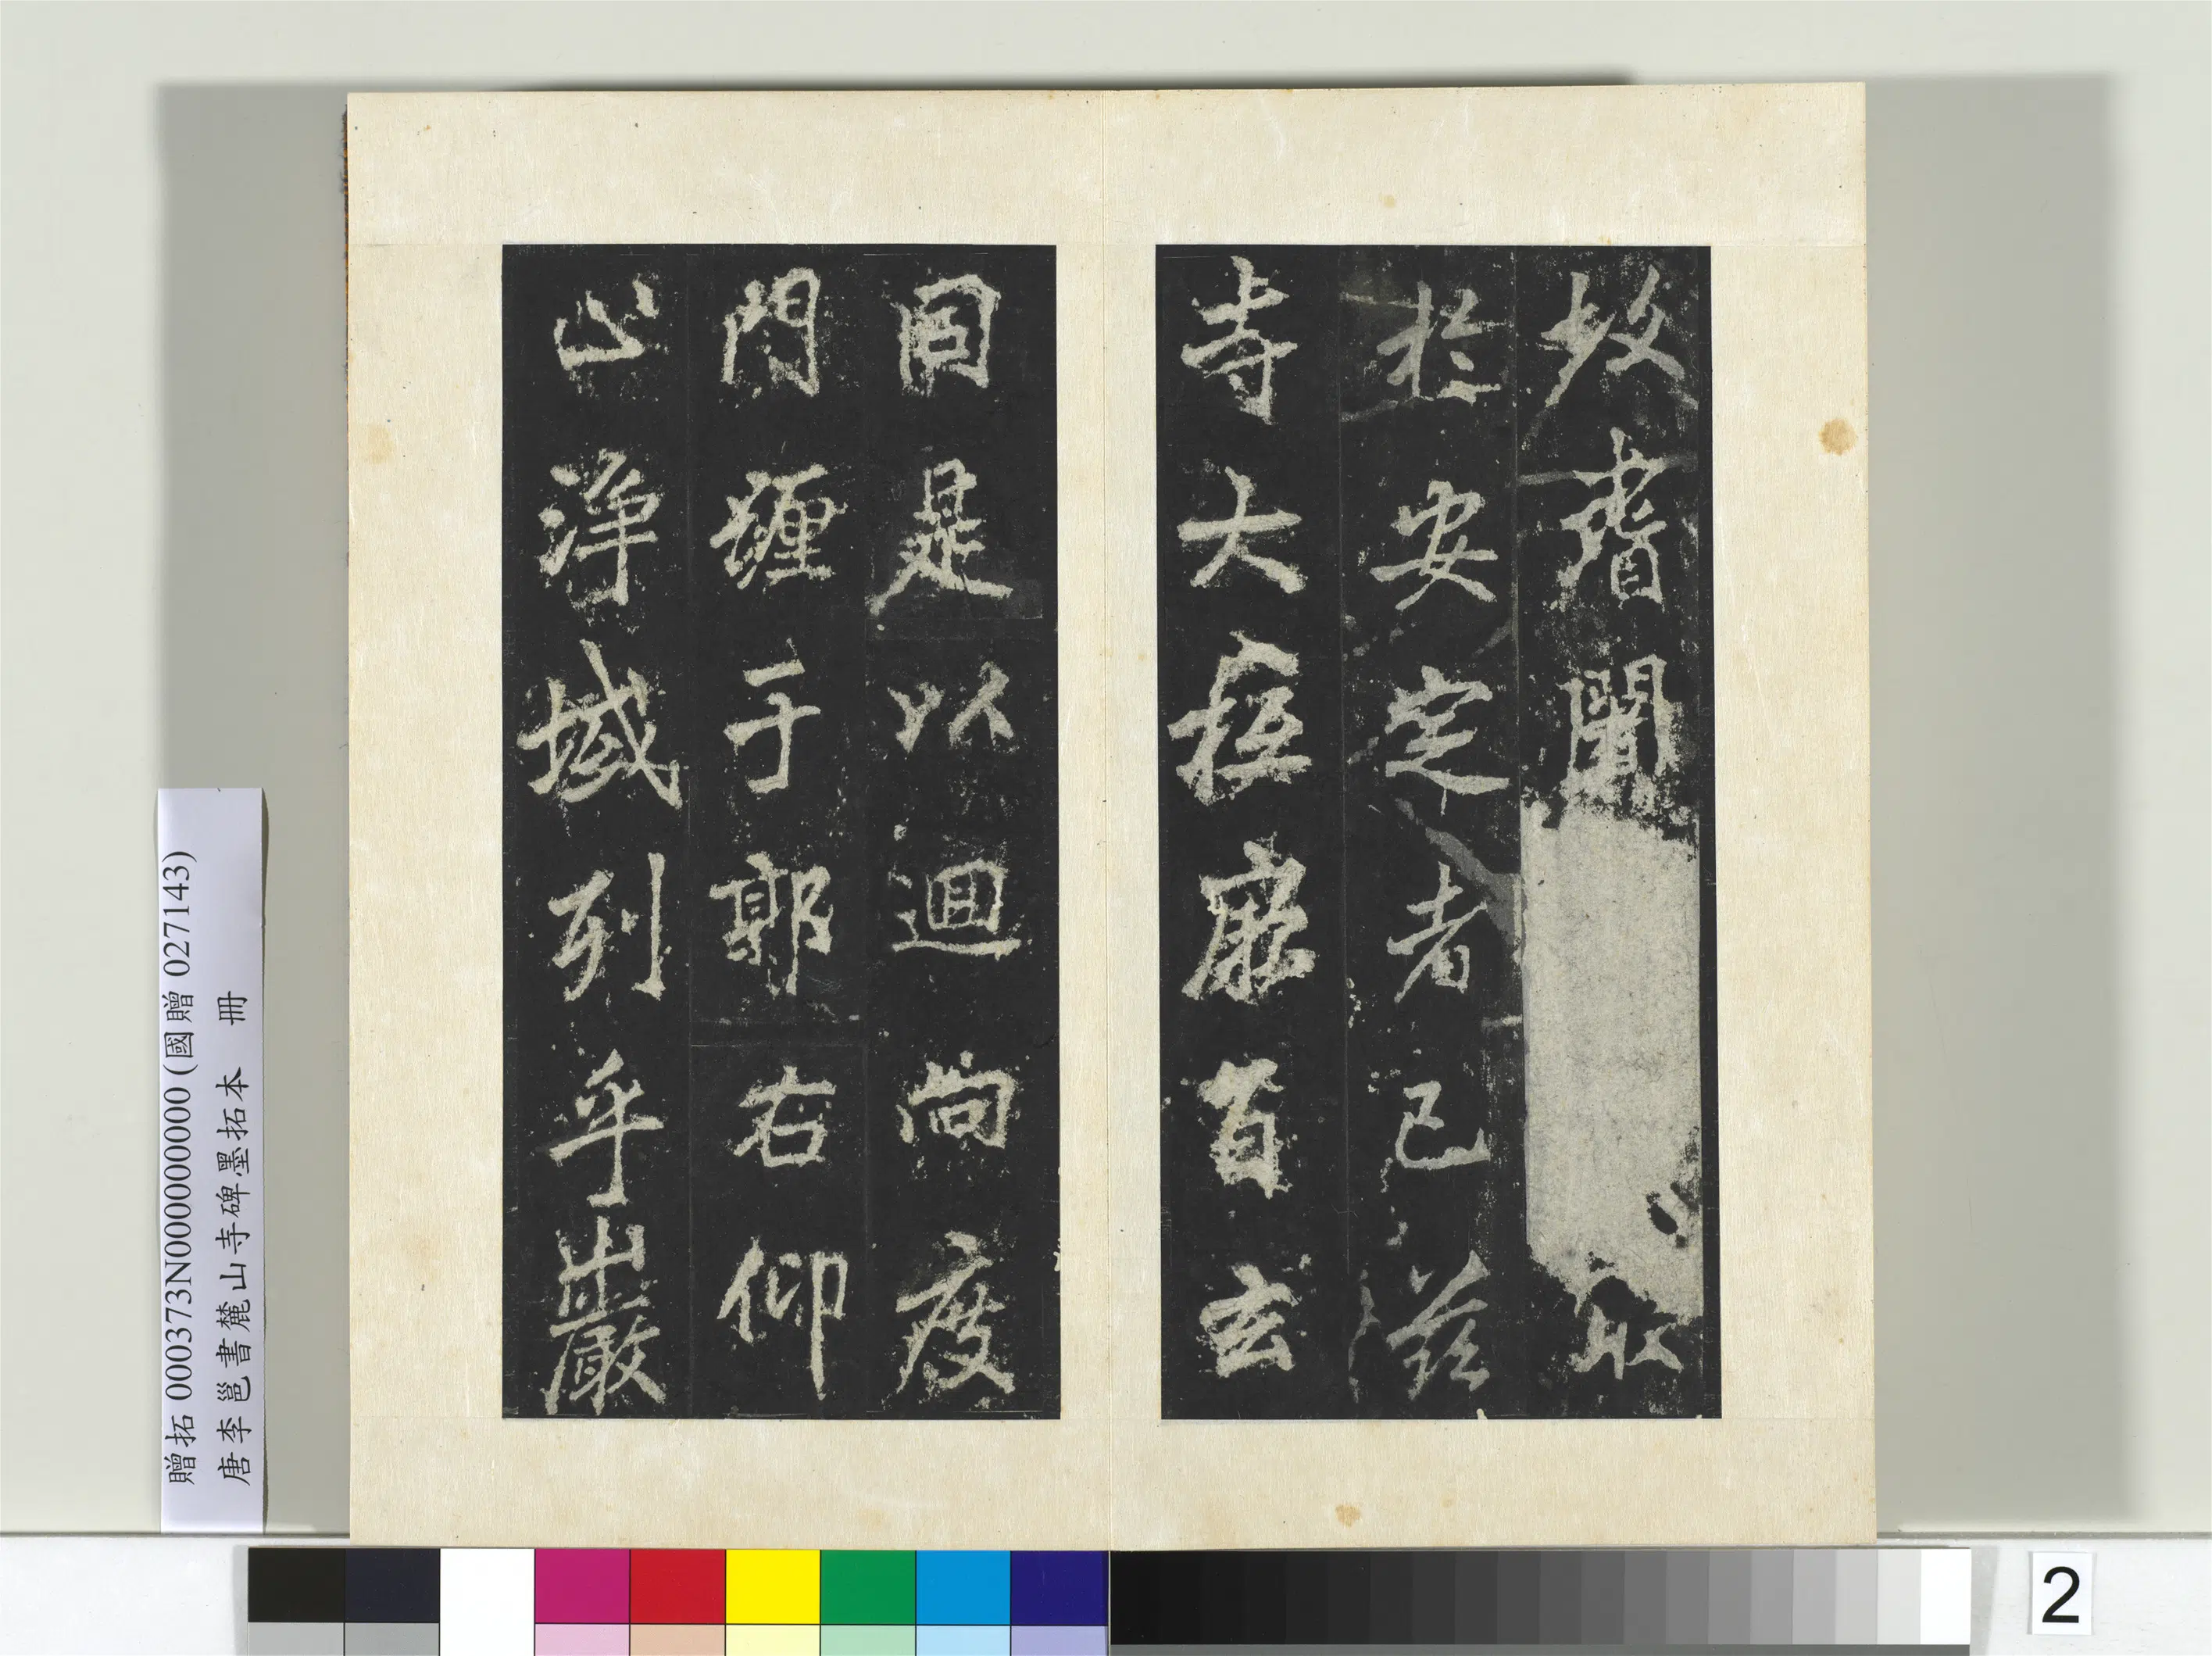 故耆闍取
於安定者已茲
寺大抵厥旨玄
同是以迴向度
門躔于郭右仰
止淨域列乎巖
贈拓 000373N000000000 (國贈 027143)
唐李邕書麓山寺碑墨拓本 冊
2